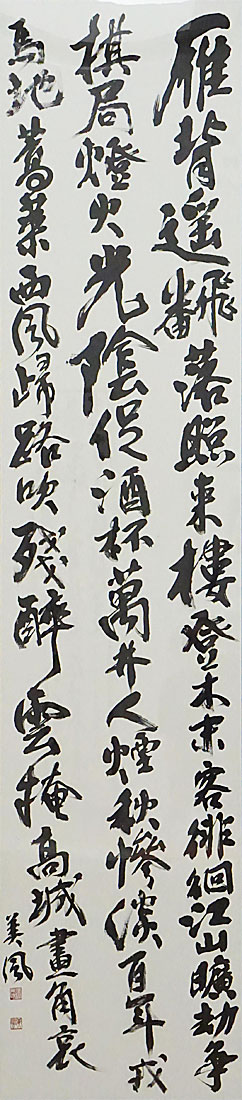 雁背遥飜落照来樓登木末客徘徊江山曠劫争
棋局燈火光陰促酒杯萬井人煙秋惨淡百年戎
馬地蒿萊西風歸路吹残醉雲掩高城畫角哀
美風